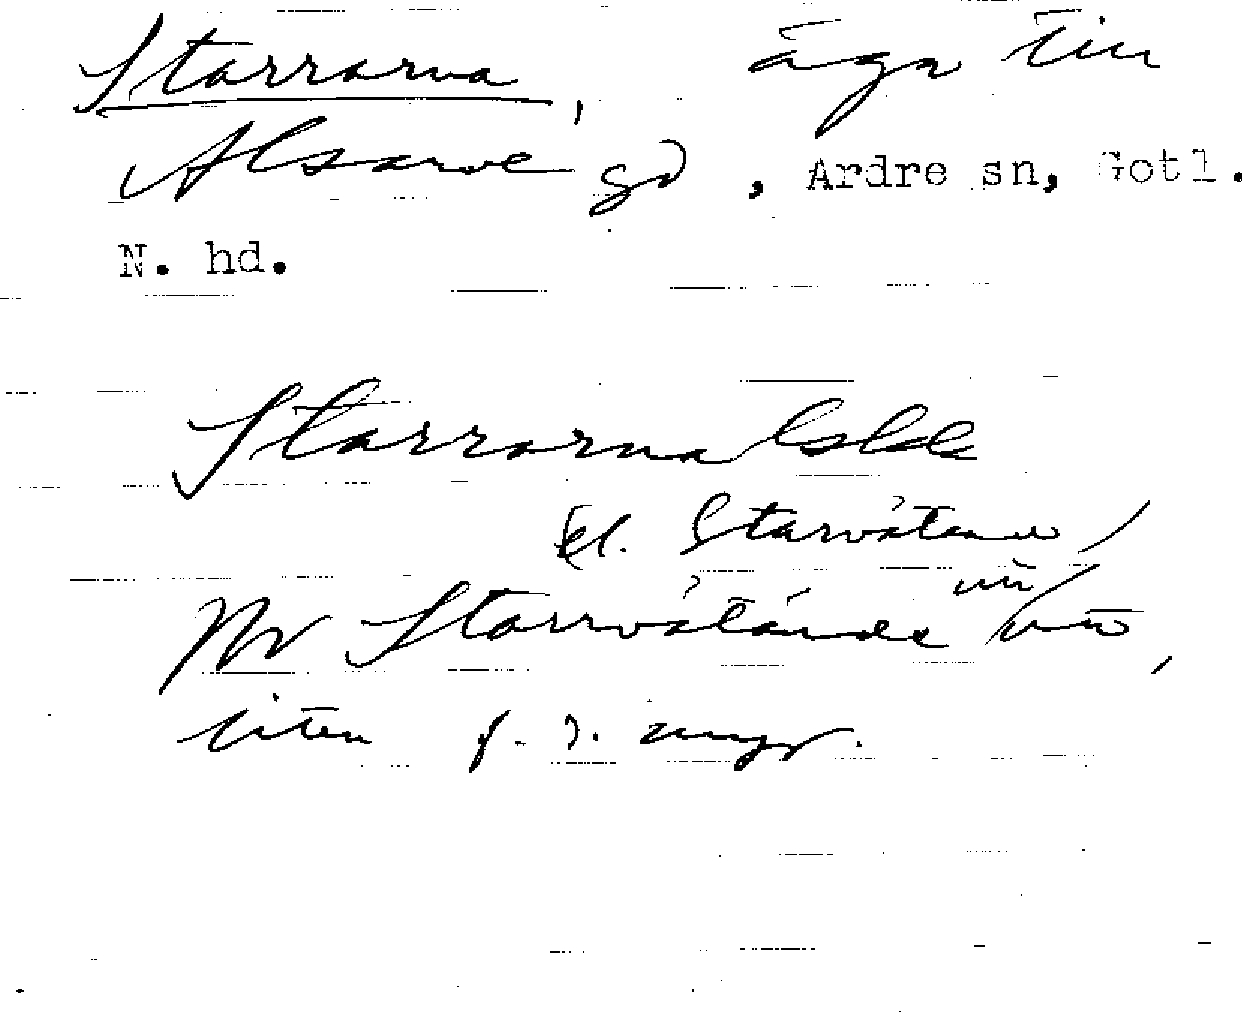 Starrarna, äga till
Alsarve gd, Ardre sn, Gotl.
N. hd.
Starrarna
el. Starvätane,
NV Starrvätande
liten f. d. myr.